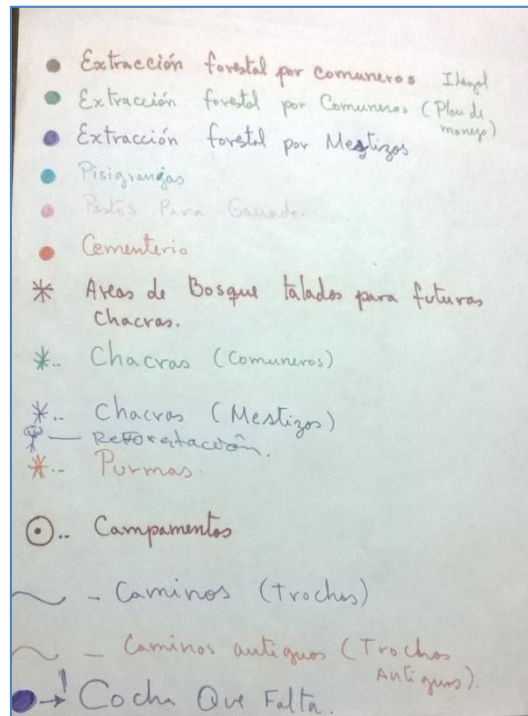 Extracción forestal por comuneros Ilegal
Extracción forestal por Comuneros (Plan de
manejo)
Extracción forestal por Mestizos
Pisigranjas
Pastos Para Ganado.
Cementerio
Areas de Bosque talados para futuras
Chacras.
Chacras (Comuneros)
Chacras (Mestizos)
Reforestación.
Purmas.
Campamentos
Caminos (Trochas)
Caminos antiguos (Trochas
Antiguos).
Cocha Que Falta.